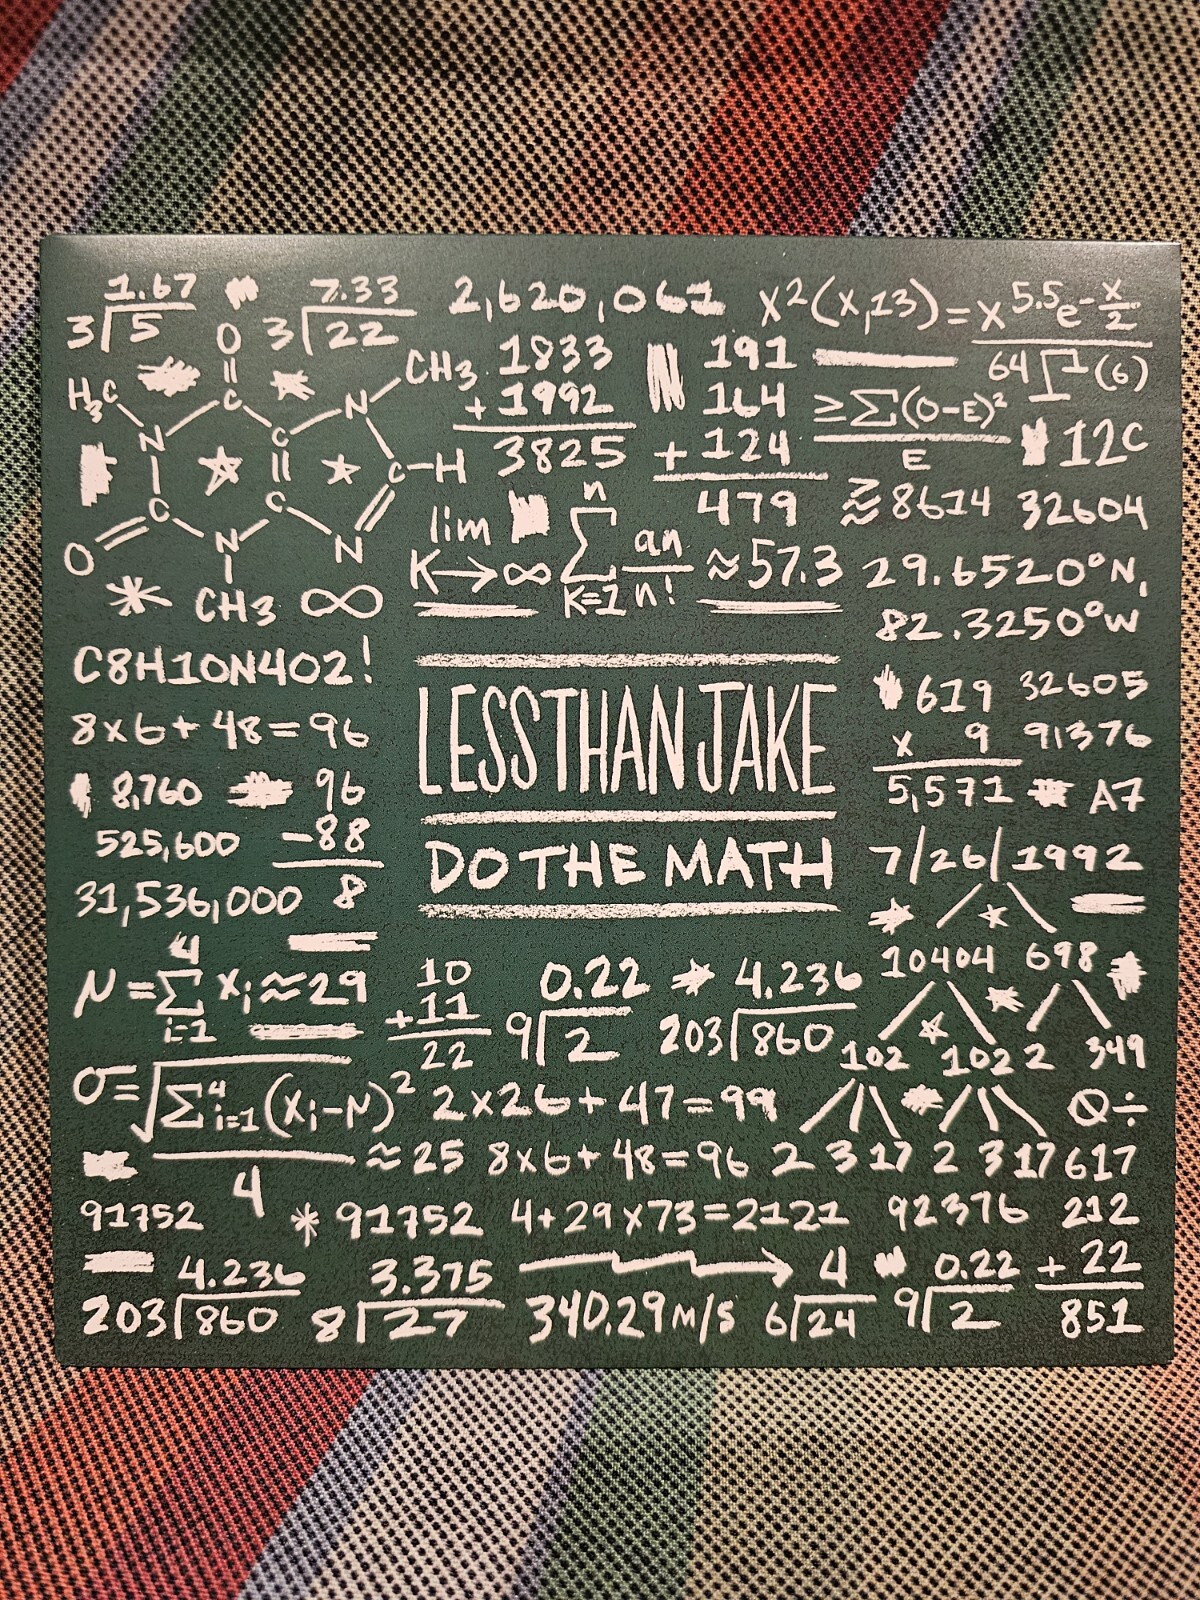 1.67
3 5
7.33
3 22
2,620,061
X²(x,13)=x^5.5 e^-x/2
64 Γ(6)
O
H3C
C
N
CH3
N
C
C-H
C
C
O
N
N
CH3
∞
1833
+1992
3825
191
164
+124
479
≥Σ(O-E)²
E
≈8614
12C
32604
lim
K→∞
n
Σ
K=1
an
n!
≈57.3
29.6520°N,
82.3250°W
C8H10N4O2!
8x6+48=96
8,760
525,600
31,536,000
96
-88
8
LESS THAN JAKE
DO THE MATH
619
x 9
5,571
32605
91376
A7
7/26/1992
10404 698
102 102 2 349
2 3 17 2 3 17
μ=Σ xi≈29
4
i=1
10
+11
22
0.22
9 2
4.236
203 860
σ=√Σ⁴i=1(xi-μ)²
4
≈25
2x26+47=99
8x6+48=96
4+29x73=2121
Q÷
617
212
+22
851
91752
*91752
92376
4.236
203 860
3.375
8 27
340.29M/S
4
6 24
0.22
9 2